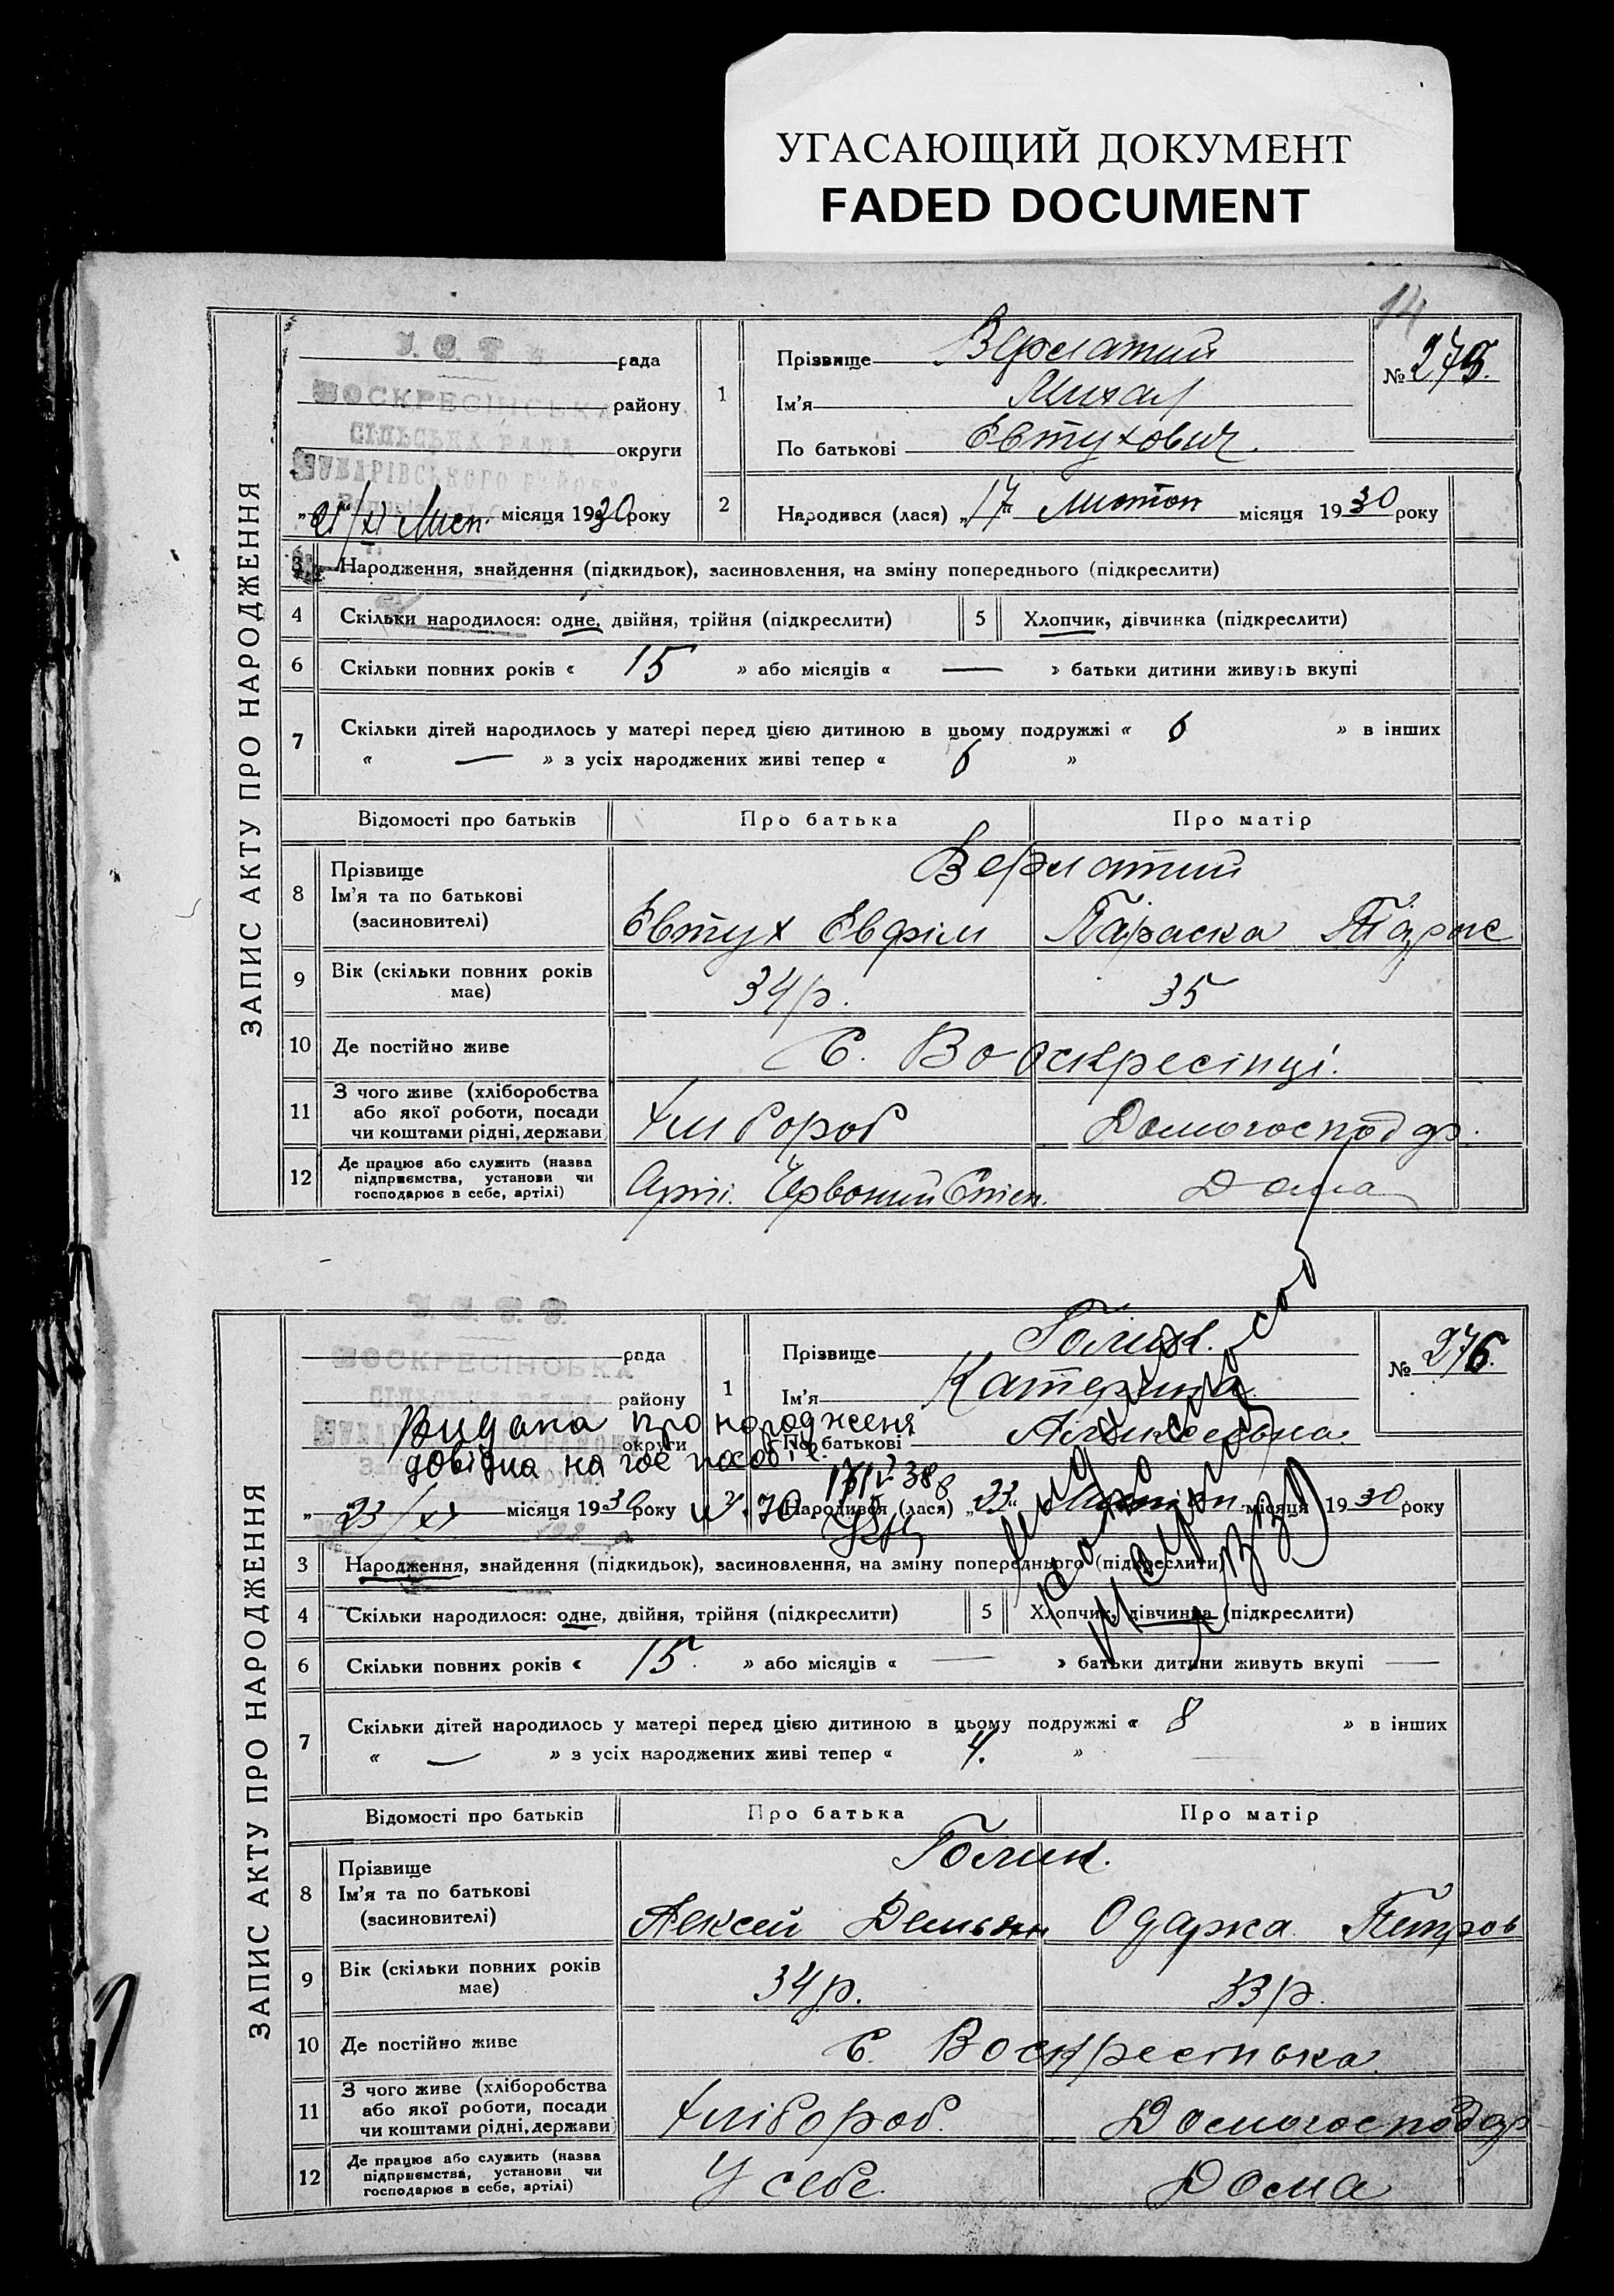 УГАСАЮЩИЙ ДОКУМЕНТ
FADED DOCUMENT
14
ЗАПИС АКТУ ПРО НАРОДЖЕННЯ
У. С. Р. Р.
ВОСКРЕСІНСЬКА
СІЛЬСЬКА РАДА
рада
району
округи
місяця 1930 року
1
Прізвище Верматий
Ім'я Михал
По батькові Євтухович.
№ 275.
2
Народився (лася) „17“ Листоп місяця 1930 року
3 Народження, знайдення (підкидьок), засиновлення, на зміну попереднього (підкреслити)
4 Скільки народилося: одне, двійня, трійня (підкреслити)
5 Хлопчик, дівчинка (підкреслити)
6 Скільки повних років « 15 » або місяців « — » батьки дитини живуть вкупі
7 Скільки дітей народилось у матері перед цією дитиною в цьому подружжі « 6 » в інших
« — » з усіх народжених живі тепер « 6 »
Відомості про батьків Про батька Про матір
8 Прізвище
Ім'я та по батькові
(засиновителі)
Верматий
Євтух Євфім Параска
9 Вік (скільки повних років має) 34 р. 35
10 Де постійно живе С. Воскресінці.
11 З чого живе (хліборобства
або якої роботи, посади
чи коштами рідні, держави
Хлібороб Домогосподар.
12 Де працює або служить (назва
підприємства, установи чи
господарює в себе, артілі)
Арті. Червоний Степ. Дома
ЗАПИС АКТУ ПРО НАРОДЖЕННЯ
У. С. Р. Р.
ВОСКРЕСІНСЬКА
СІЛЬСЬКА РАДА
рада
району
округи
„23/XI місяця 1930 року
1
Прізвище Голик.
Ім'я Катерина
По батькові Алексеевна.
№ 276.
Видана про народження
довідка на гос пособіе.
2
Народився (лася) „23“ місяця 1930 року
3 Народження, знайдення (підкидьок), засиновлення, на зміну попереднього (підкреслити)
4 Скільки народилося: одне, двійня, трійня (підкреслити)
5 Хлопчик, дівчинка (підкреслити)
6 Скільки повних років « 15. » або місяців « — » батьки дитини живуть вкупі —
7 Скільки дітей народилось у матері перед цією дитиною в цьому подружжі « 8 » в інших
« — » з усіх народжених живі тепер « 4. »
Відомості про батьків Про батька Про матір
8 Прізвище
Ім'я та по батькові
(засиновителі)
Голик.
Алексей Демьян Одарка Петров
9 Вік (скільки повних років має) 34 р. 33 р.
10 Де постійно живе С. Воскресінька
11 З чого живе (хліборобства
або якої роботи, посади
чи коштами рідні, держави
Хлібороб. Домогосподар
12 Де працює або служить (назва
підприємства, установи чи
господарює в себе, артілі)
У себе. Дома